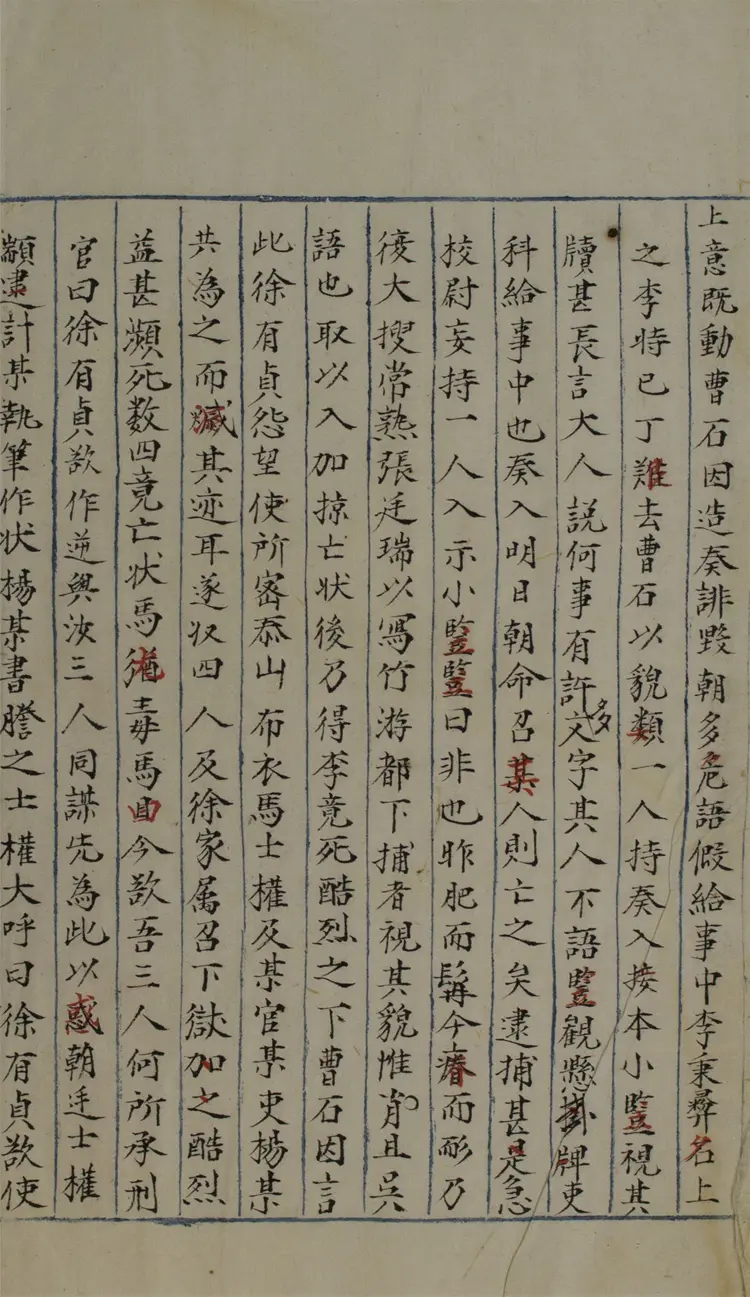 上意既動曹石因造奏誹毀朝多危語假給事中李秉彞名上
之李時已丁難去曹石以貌類一人持奏入接本小豎視其
牘甚長言大人説何事有許多文字其人不語豎觀懸掛牌吏
科給事中也奏入明日朝命召某人則亡之矣逮捕甚是急
校尉妄持一人入示小豎豎曰非也昨肥而髯今瘠而彫乃
復大搜常熟張廷瑞以寫竹游都下捕者視其貌惟肖且吴
語也取以入加掠亡状後乃得李竟死酷烈之下曹石因言
此徐有貞怨望使所宻泰山布衣馬士權及某官某吏楊某
共為之而滅其迹耳遂収四人及徐家属召下獄加之酷烈
益甚瀕死数四竟亡状馬猶毒馬曲今欲吾三人何所承刑
官曰徐有貞欲作逆與汝三人同謀先為此以惑朝廷士權
顓逮計某執筆作状楊某書謄之士權大呼曰徐有貞欲使